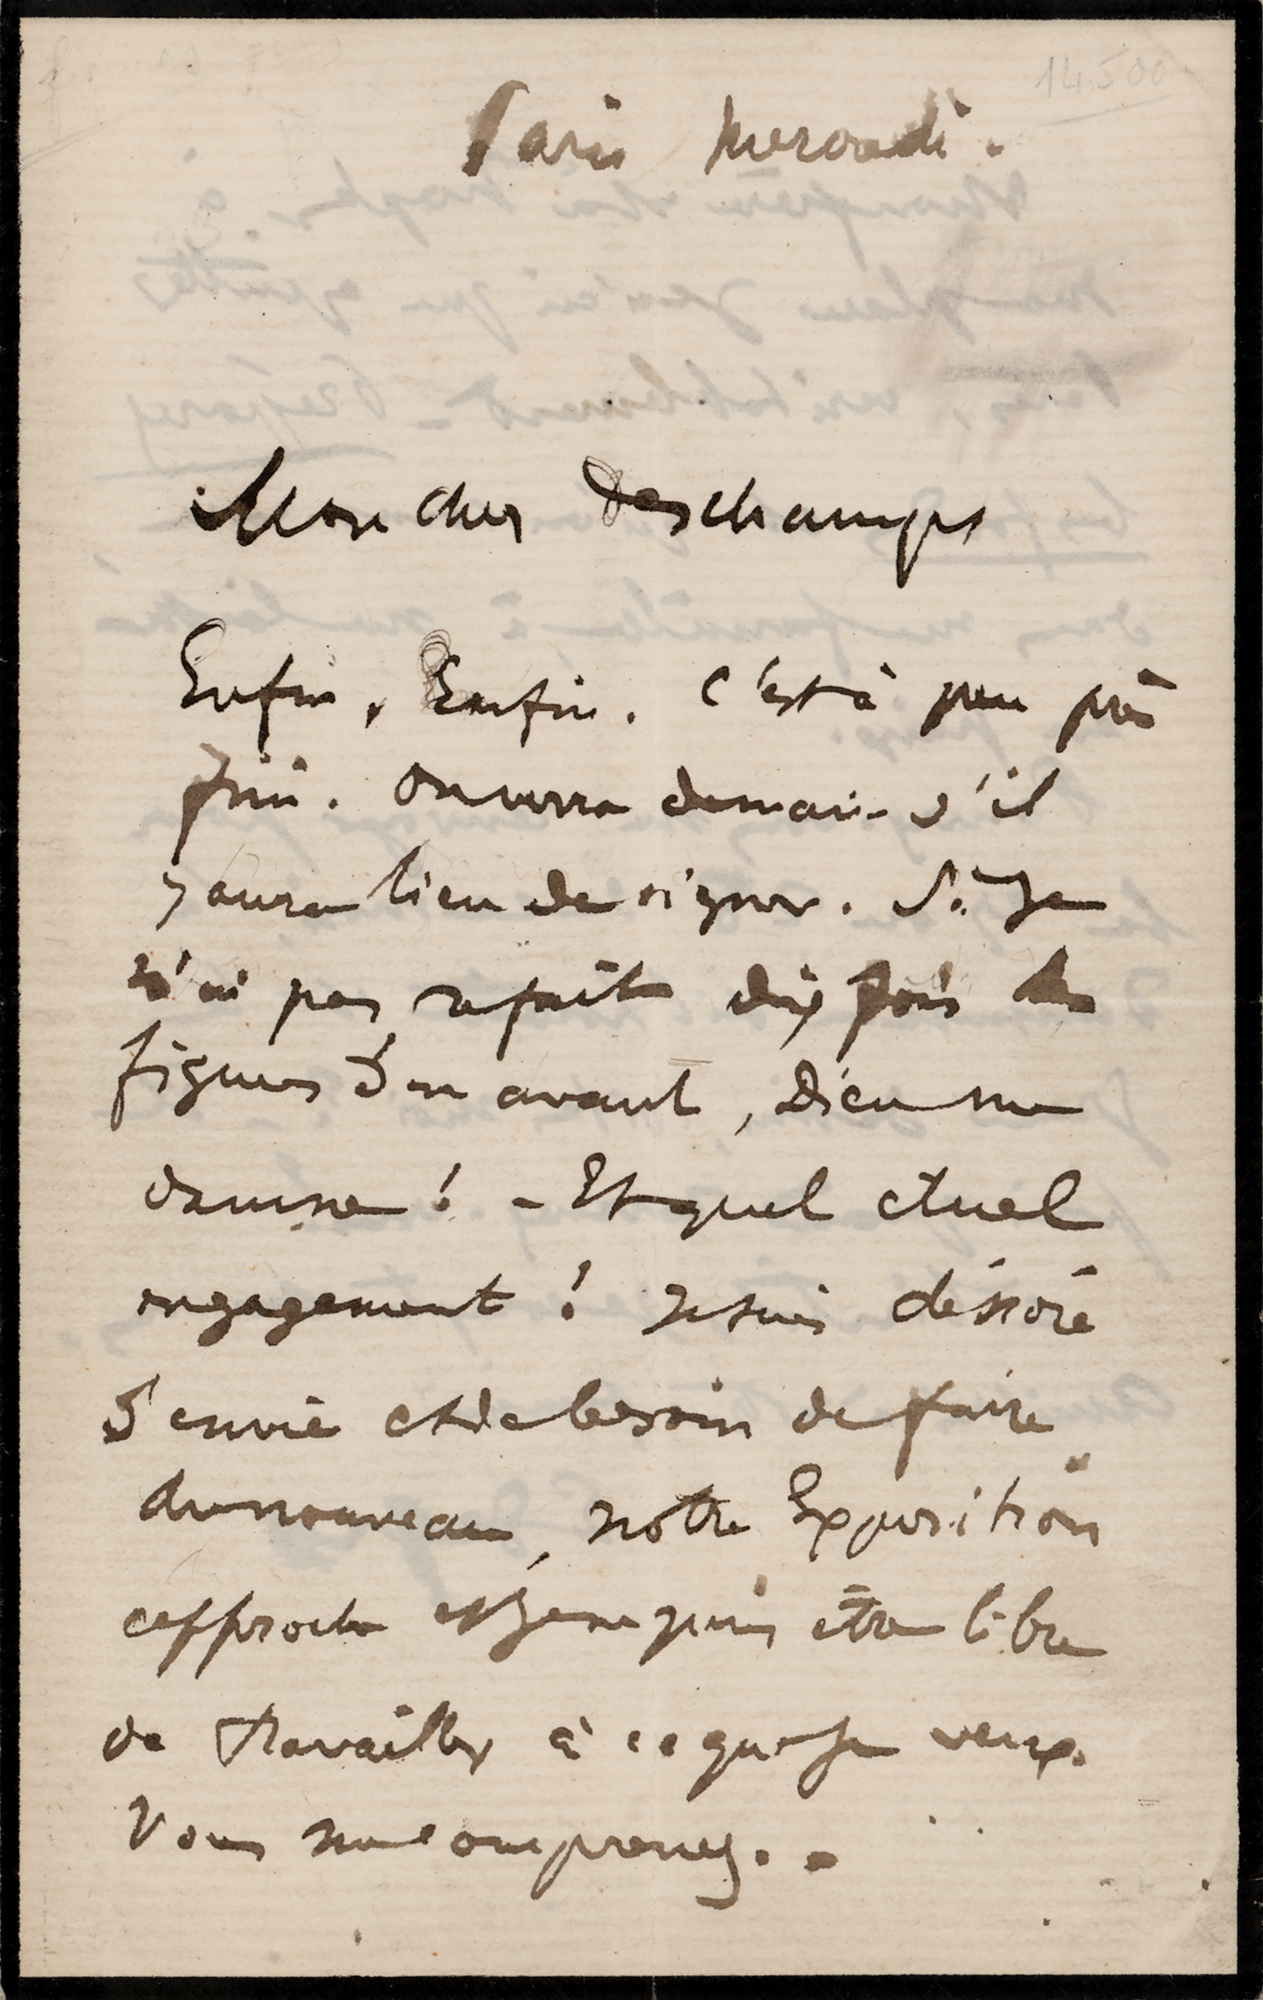 14500
Paris Mercredi.
Mon cher Deschamps
Enfin, Enfin. C'est à peu près
fini. on verra demain s'il
y aura lieu de signer. Si je
n'ai pas refait dix fois les
figures d'en avant, Dieu me
damne! – Et quel cruel
engagement! Je suis dévoré
d'envie et de besoin de faire
du nouveau, notre Exposition
approche et je ne puis être libre
de travailler à ce que je veux.
Vous me comprenez. –